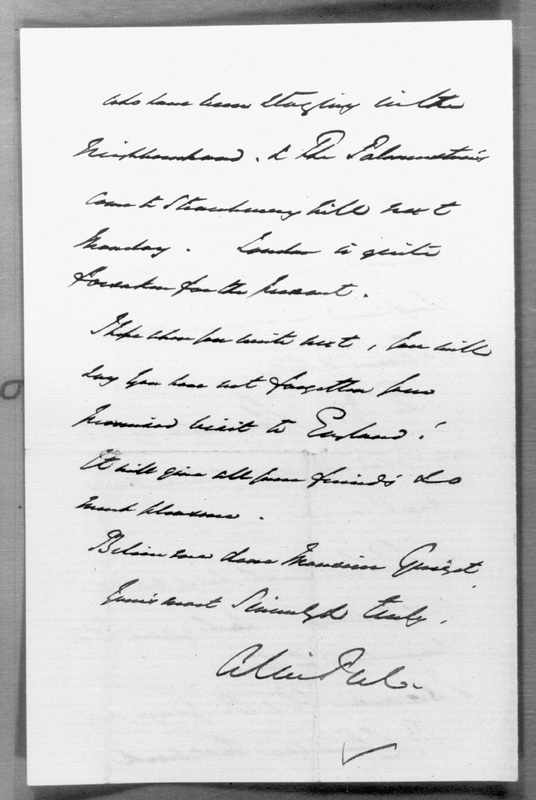 who have been staying in the
Neighbourhood. & The Palmerstons
come to Strawberry Hill next
Monday. London is quite
forsaken for the present.
I hope when you write next, you will
say you have not forgotten your
promised visit to England!
It will give all your friends so
much pleasure.
Believe me dear Monsieur Guizot
Yours most Sincerely & truly.